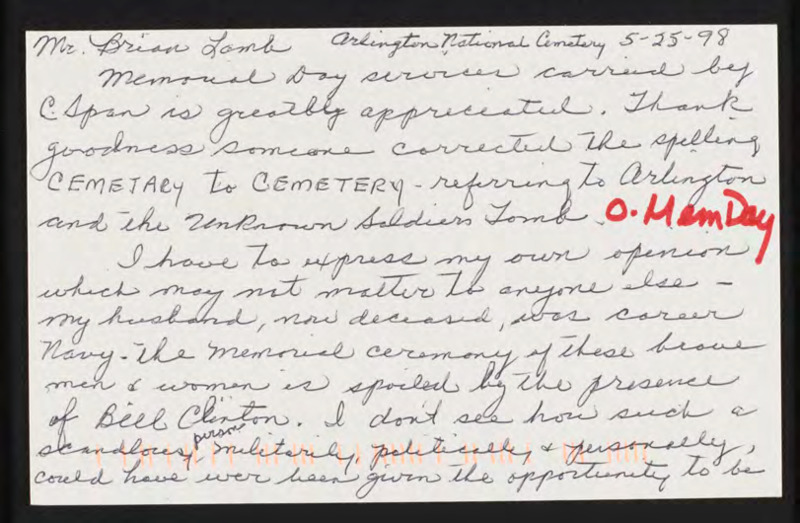 Mr. Brian Lamb Arlington National Cemetery 5-25-98
Memorial Day services carried by
C.Span is greatly appreciated. Thank
goodness someone corrected the spelling
CEMETARY to CEMETERY - referring to Arlington
and the Unknown Soldiers Tomb. O. Mem Day
I have to express my own opinion
which may not matter to anyone else -
my husband, now deceased, was career
Navy - the Memorial ceremony of these brave
men & women is spoiled by the presence
of Bill Clinton. I don't see how such a
scandlous person, militarily, politically & personally,
could have ever been given the opportunity to be